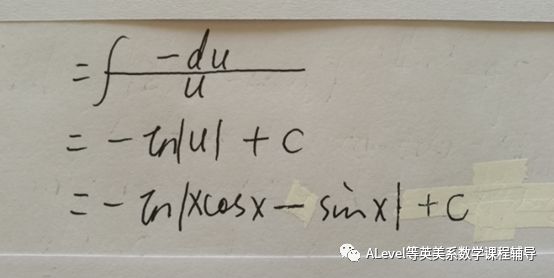 = ∫ -du / u
= - ln|u| + c
= - ln|xcosx - sinx| + c
ALevel等英美系数学课程辅导